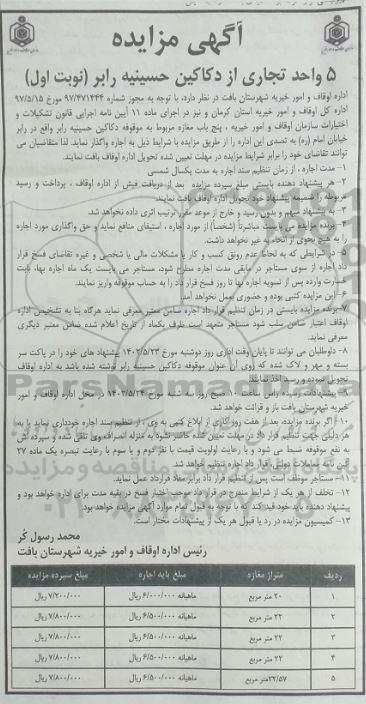 آگهی مزایده
۵ واحد تجاری از دکاکین حسینیه رابر (نوبت اول)
اداره اوقاف و امور خیریه شهرستان بافت در نظر دارد، با توجه به مجوز شماره ۹۷/۴۷۱۴۳۴ مورخ ۹۷/۵/۱۵
اداره کل اوقاف و امور خیریه استان کرمان و نیز در اجرای ماده ۱۱ آیین نامه اجرایی قانون تشکیلات و
اختیارات سازمان اوقاف و امور خیریه ، پنج باب مغازه مربوط به موقوفه دکاکین حسینیه رابر واقع در رابر
خیابان امام (ره) به تصدی این اداره را از طریق مزایده با شرایط ذیل به اجاره واگذار نماید. لذا متقاضیان می
توانند تقاضای خود را برابر شرایط مزایده در مهلت تعیین شده تحویل اداره اوقاف بافت نمایند.
۱- مدت اجاره ، از زمان تنظیم سند اجاره به مدت یکسال شمسی
۲- هر پیشنهاد دهنده بایستی مبلغ سپرده مزایده بعد از دریافت فیش از اداره اوقاف ، پرداخت و رسید
مربوطه را ضمیمه پیشنهاد خود تحویل اداره اوقاف بافت نمایند.
۳- به پیشنهاد مبهم و بدون رسید و خارج از موعد مقرر ترتیب اثری داده نخواهد شد.
۴- برنده مزایده می بایست مباشرتاً (شخصاً) از مورد اجاره ، استیفای منافع نماید و حق واگذاری مورد اجاره
را به هیچ نحوی از انحاء به غیر نخواهد داشت.
۵- در شرایطی که به لحاظ عدم رونق کسب و کار یا مشکلات مالی یا شخصی و غیره تقاضای فسخ قرار
داد اجاره از سوی مستاجر در مابقی مدت اجاره مطرح شود، مستاجر می بایست یک ماه اجاره بها، بابت
خسارت وارده پس از تسویه اجاره بها تا روز فسخ قرار داد را به حساب موقوفه واریز نمایند.
۶- این مزایده کتبی بوده و حضوری بعمل نخواهد آمد.
۷- برنده مزایده بایستی در زمان تنظیم قرار داد اجاره ضامن معتبر معرفی نماید هرگاه بنا به تشخیص اداره
اوقاف اعتبار ضامن سلب شود مستاجر متعهد است ظرف یکماه از تاریخ اعلام شده ضامن معتبر دیگری
معرفی نماید.
۸- داوطلبان می توانند تا پایان وقت اداری روز دوشنبه مورخ ۱۴۰۲/۵/۲۳ پیشنهاد های خود را در پاکت سر
بسته و مهر و لاک شده که روی آن عنوان موقوفه دکاکین حسینیه رابر نوشته شده باشد به اداره اوقاف
تحویل نموده و رسید اخذ نمایند.
پیشنهادات رسیده راس ساعت ۱۰ صبح روز سه شنبه مورخ ۱۴۰۲/۵/۲۴ در محل اداره اوقاف و امور
خیریه شهرستان بافت باز و قرائت خواهد شد.
۱۰- اگر برنده مزایده، بعد از هفت روز کاری از ابلاغ کتبی به وی ، از تنظیم سند اجاره خودداری نماید یا به
هر دلیلی جهت تنظیم قرار داد در مهلت تعیین شده حاضر نشود به منزله انصراف وی تلقی شده و سپرده اش
به نفع موقوفه ضبط می شود و با رعایت اولویت قیمت با نفر دوم و یا سوم با رعایت تبصره یک ماده ۲۷
آئین نامه معاملات دولتی، قرار داد اجاره تنظیم خواهد شد.
۱۱- مستاجر موظف است پس از تنظیم قرار داد برابر مفاد قرارداد عمل نماید.
۱۲- تخلف از هر یک از شرایط مندرج در قرار داد موجد اختیار فسخ در بقیه مدت برای اداره خواهد بود و
پیشنهاد دهنده باید خود قید کند که با توجه به قبول تمام موارد آگهی مزایده خواهد بود.
۱۳- کمیسیون مزایده در رد یا قبول هر یک از پیشنهادات مختار است.
محمد رسول کُر
رئیس اداره اوقاف و امور خیریه شهرستان بافت
ردیف متراژ مغازه مبلغ پایه اجاره مبلغ سپرده مزایده
۱ ۲۰ متر مربع ماهیانه ۶/۰۰۰/۰۰۰ ریال ۷/۲۰۰/۰۰۰ ریال
۲ ۲۲ متر مربع ماهیانه ۶/۵۰۰/۰۰۰ ریال ۷/۸۰۰/۰۰۰ ریال
۳ ۲۲ متر مربع ماهیانه ۶/۵۰۰/۰۰۰ ریال ۷/۸۰۰/۰۰۰ ریال
۴ ۲۲ متر مربع ماهیانه ۶/۵۰۰/۰۰۰ ریال ۷/۸۰۰/۰۰۰ ریال
۵ ۲۲/۵۷ متر مربع ماهیانه ۶/۵۰۰/۰۰۰ ریال ۷/۸۰۰/۰۰۰ ریال